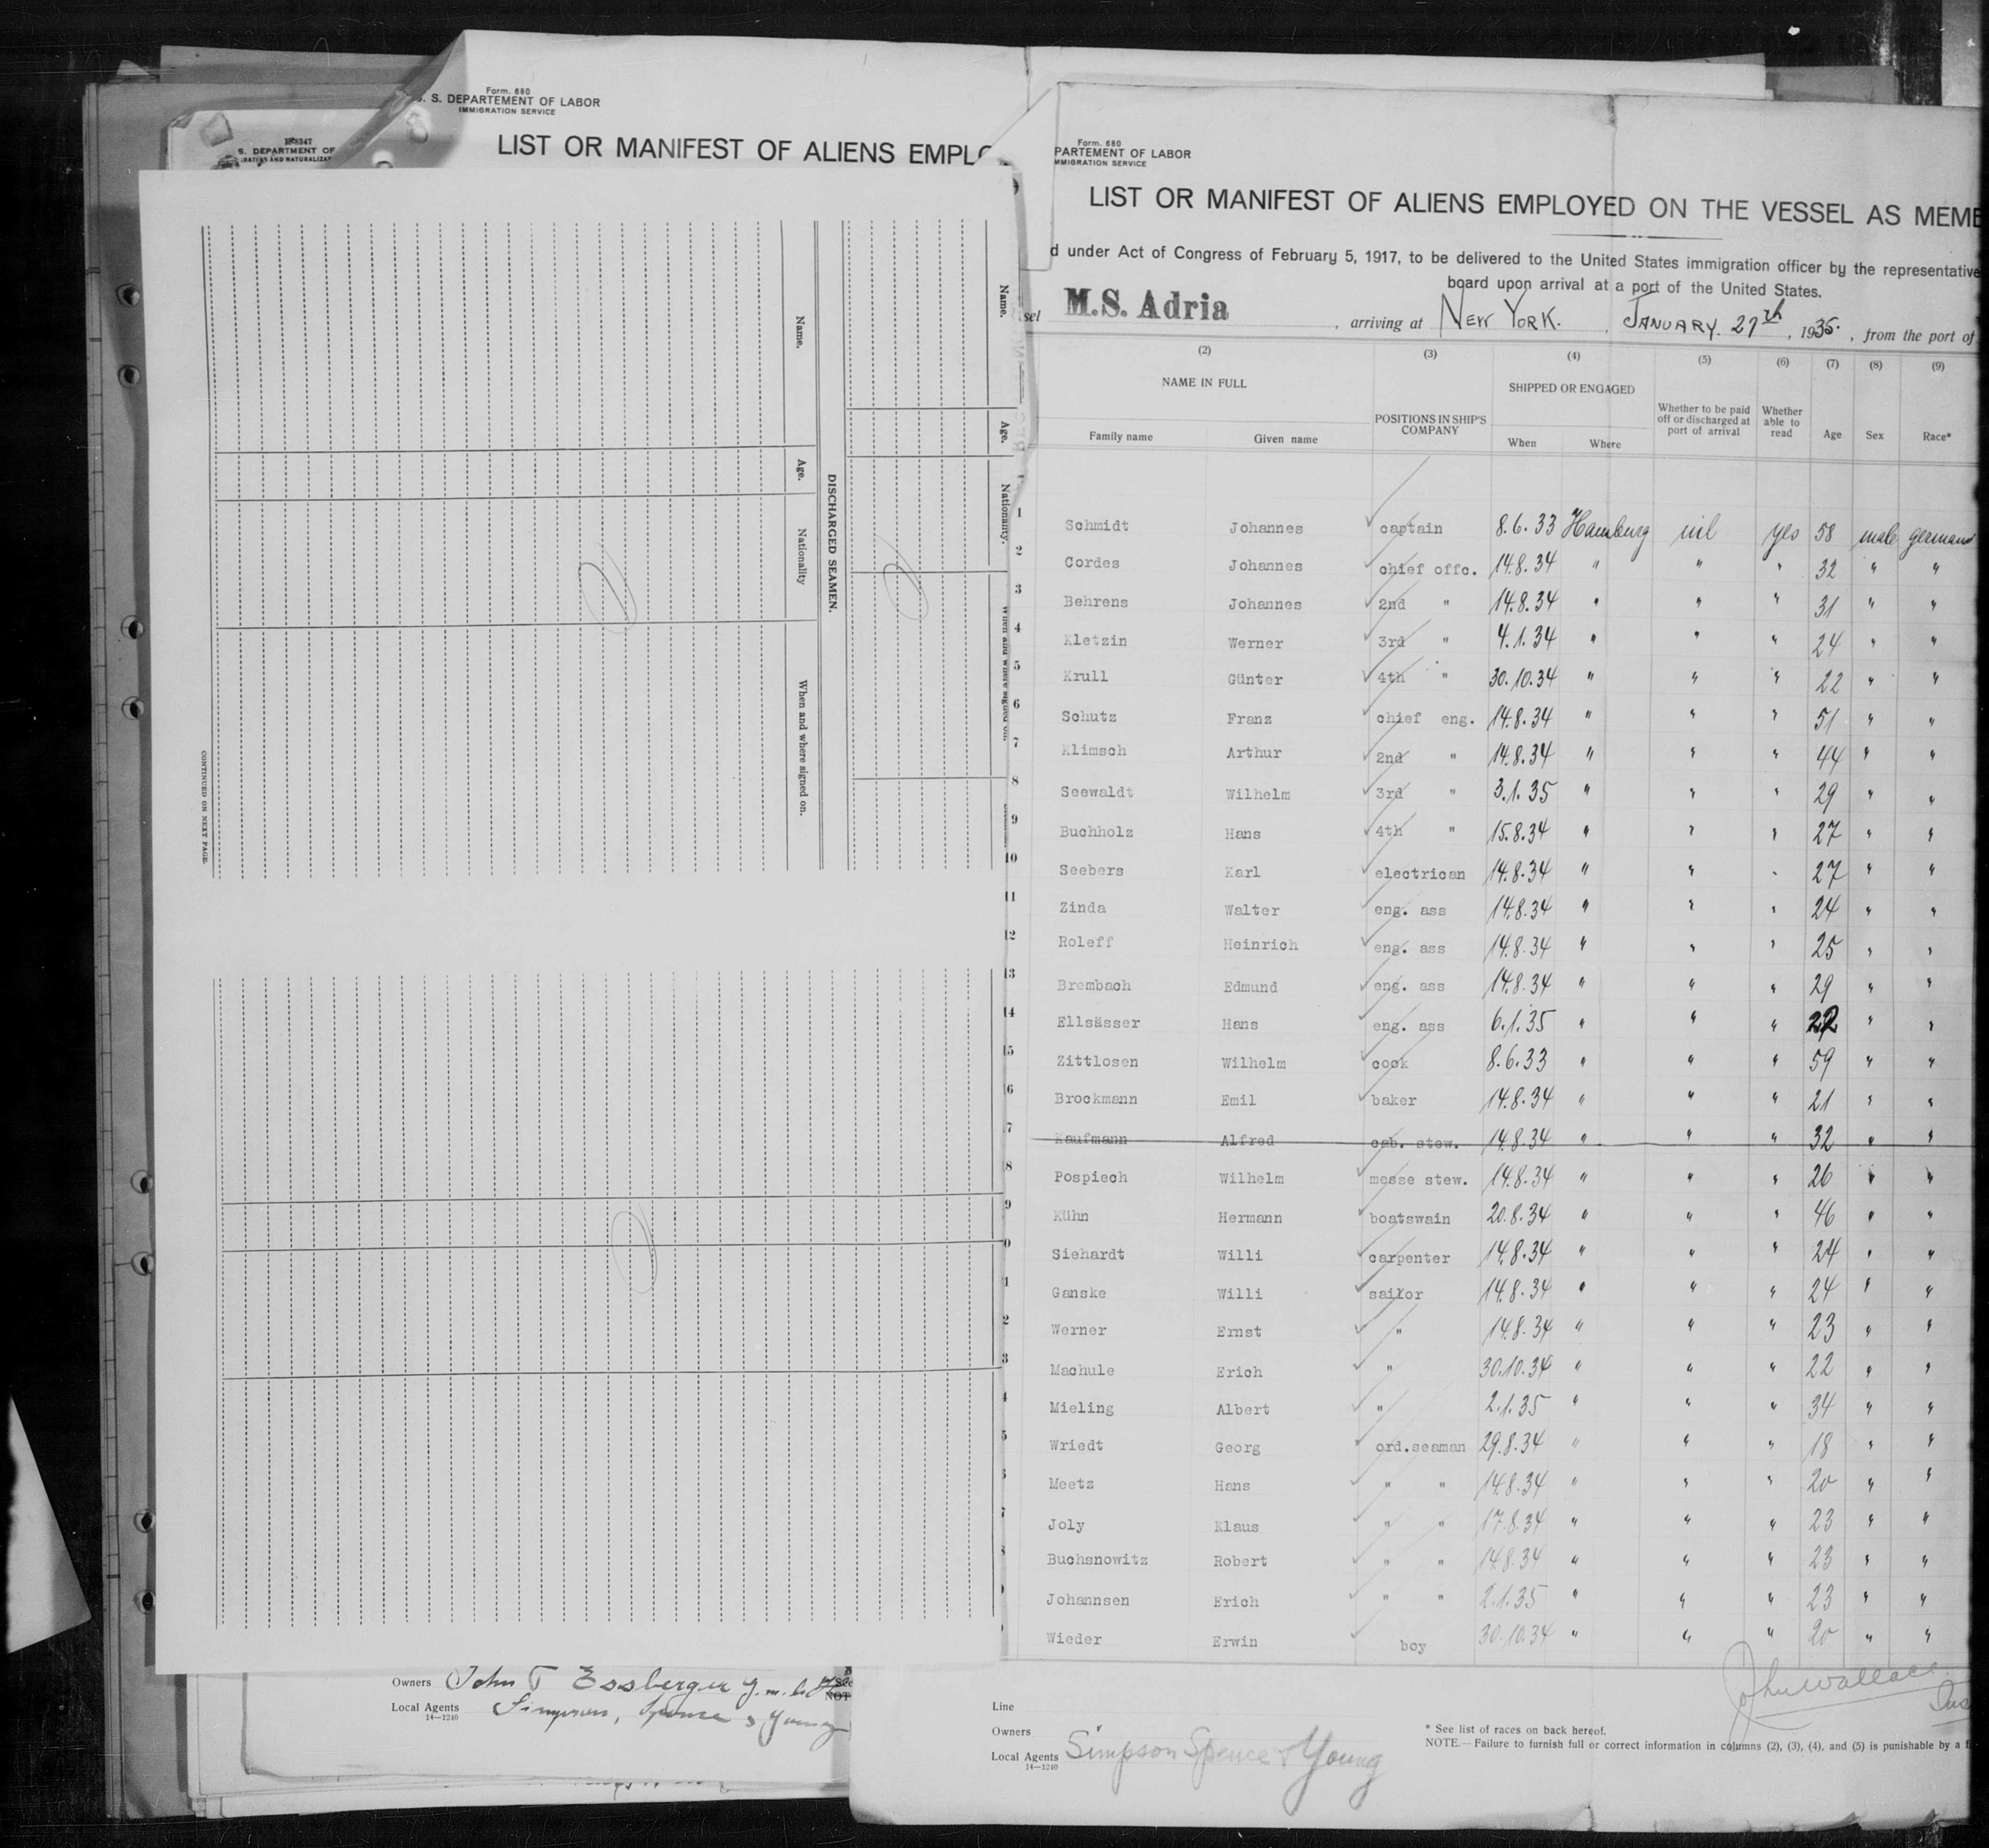 Form. 680
S. DEPARTEMENT OF LABOR
IMMIGRATION SERVICE
LIST OR MANIFEST OF ALIENS EMPLO
S. DEPARTMENT OF
Name.
Age.
Nationality.
When and where signed on.
DISCHARGED SEAMEN.
Name.
Age.
Nationality
When and where signed on.
CONTINUED ON NEXT PAGE.
Owners John T Essberger G.m.b.H
Local Agents Simpson, Spence & Young
14—1240
Form. 680
PARTEMENT OF LABOR
MMIGRATION SERVICE
LIST OR MANIFEST OF ALIENS EMPLOYED ON THE VESSEL AS MEMB
d under Act of Congress of February 5, 1917, to be delivered to the United States immigration officer by the representative
board upon arrival at a port of the United States.
sel M.S. Adria , arriving at NEW YORK. , JANUARY. 27th , 1935. , from the port of
(2) (3) (4) (5) (6) (7) (8) (9)
NAME IN FULL
Family name Given name
POSITIONS IN SHIP'S COMPANY
SHIPPED OR ENGAGED
When Where
Whether to be paid off or discharged at port of arrival
Whether able to read
Age Sex Race*
1 Schmidt Johannes captain 8.6.33 Hamburg nil yes 58 male german
2 Cordes Johannes chief offc. 14.8.34 " " " 32 " "
3 Behrens Johannes 2nd " 14.8.34 " " " 31 " "
4 Kletzin Werner 3rd " 4.1.34 " " " 24 " "
5 Krull Günter 4th " 30.10.34 " " " 22 " "
6 Schutz Franz chief eng. 14.8.34 " " " 51 " "
7 Klimsch Arthur 2nd " 14.8.34 " " " 44 " "
8 Seewaldt Wilhelm 3rd " 3.1.35 " " " 29 " "
9 Buchholz Hans 4th " 15.8.34 " " " 27 " "
10 Seebers Karl electrican 14.8.34 " " " 27 " "
11 Zinda Walter eng. ass 14.8.34 " " " 24 " "
12 Roleff Heinrich eng. ass 14.8.34 " " " 25 " "
13 Brembach Edmund eng. ass 14.8.34 " " " 29 " "
14 Ellsässer Hans eng. ass 6.1.35 " " " " "
15 Zittlosen Wilhelm cook 8.6.33 " " " 59 " "
16 Brockmann Emil baker 14.8.34 " " " 21 " "
7 Kaufmann Alfred cab. stew. 14.8.34 " " " 32 " "
8 Pospiech Wilhelm messe stew. 14.8.34 " " " 26 " "
9 Kühn Hermann boatswain 20.8.34 " " " 46 " "
0 Siehardt Willi carpenter 14.8.34 " " " 24 " "
1 Ganske Willi sailor 14.8.34 " " " 24 " "
2 Werner Ernst " 14.8.34 " " " 23 " "
3 Machule Erich " 30.10.34 " " " 22 " "
4 Mieling Albert " 2.1.35 " " " 34 " "
5 Wriedt Georg ord.seaman 29.8.34 " " " 18 " "
Meetz Hans " " 14.8.34 " " " 20 " "
7 Joly Klaus " " 17.8.34 " " " 23 " "
Buchsnowitz Robert " " 14.8.34 " " " 23 " "
Johannsen Erich " " 2.1.35 " " " 23 " "
Wieder Erwin boy 30.10.34 " " " 20 " "
John Wallace
Ins
Line
Owners
Local Agents Simpson Spence & Young
14—1240
* See list of races on back hereof.
NOTE.—Failure to furnish full or correct information in columns (2), (3), (4), and (5) is punishable by a f